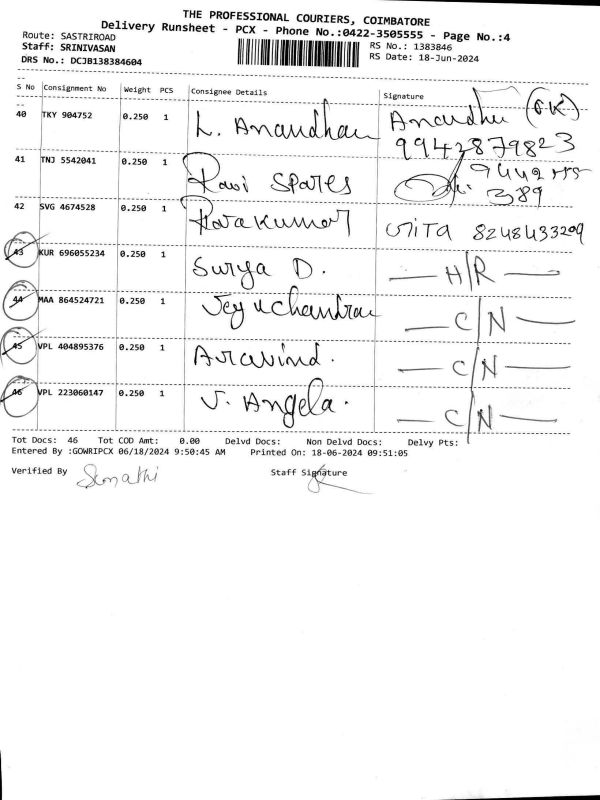 THE PROFESSIONAL COURIERS, COIMBATORE
Delivery Runsheet - PCX - Phone No.:0422-3505555 - Page No.:4
Route: SASTRIROAD
Staff: SRINIVASAN
RS No.: 1383846
DRS No.: DCJB138384604
RS Date: 18-Jun-2024
S No Consignment No Weight PCS Consignee Details Signature
40 TKY 904752 0.250 1 L. Anandhan Anandhu (OK)
9942879823
41 TNJ 5542041 0.250 1 Ravi Spares 9442
389
42 SVG 4674528 0.250 1 8248433209
43 KUR 696055234 0.250 1 Surya D. — H/R —
44 MAA 864524721 0.250 1 Jeyuchandran — C/N —
45 VPL 404895376 0.250 1 Aravind. — C/N —
46 VPL 223060147 0.250 1 J. Angela. — C/N —
Tot Docs: 46 Tot COD Amt: 0.00 Delvd Docs: Non Delvd Docs: Delvy Pts:
Entered By :GOWRIPCX 06/18/2024 9:50:45 AM Printed On: 18-06-2024 09:51:05
Verified By Sumathi Staff Signature